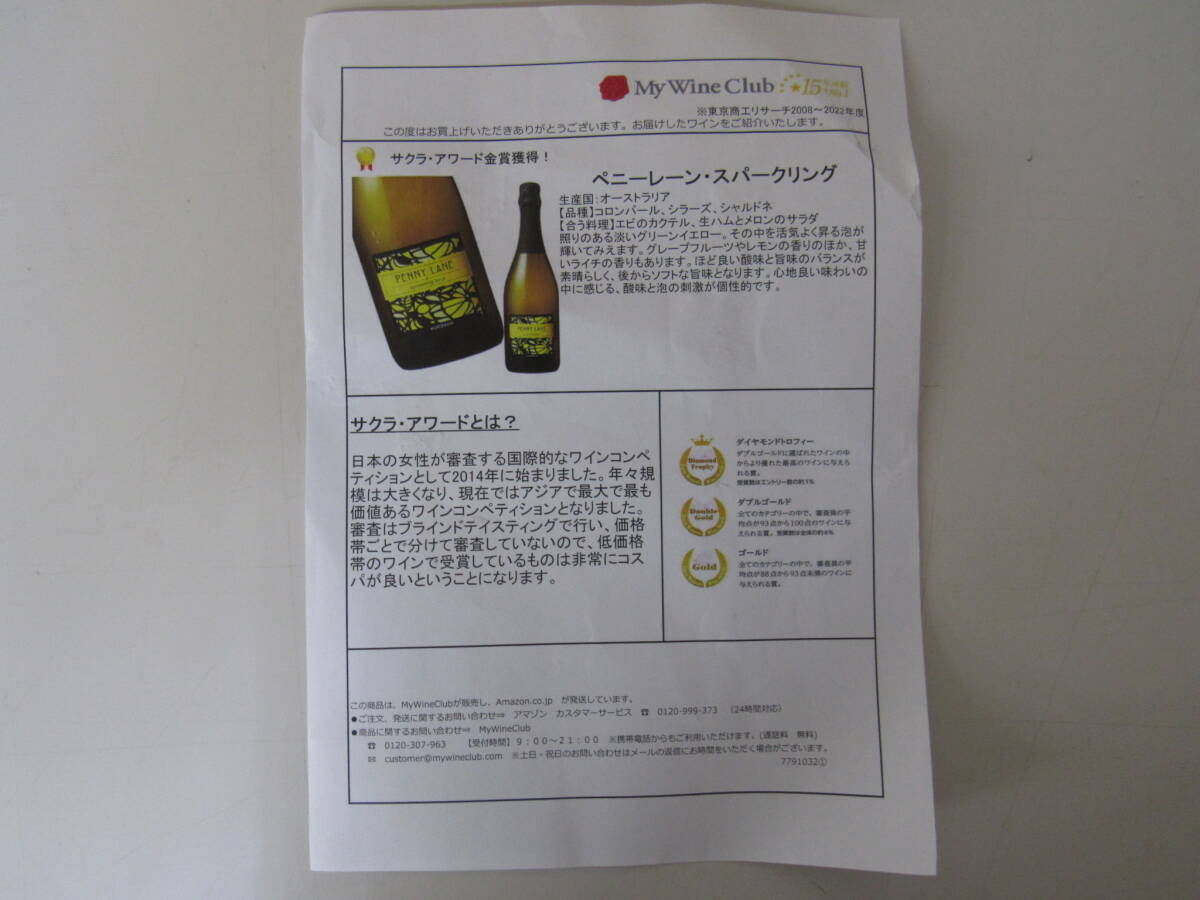 My Wine Club ★15年連続
※東京商エリサーチ2008～2022年度
この度はお買上げいただきありがとうございます。お届けしたワインをご紹介いたします。
サクラ・アワード金賞獲得！
ペニーレーン・スパークリング
生産国：オーストラリア
【品種】コロンバール、シラーズ、シャルドネ
【合う料理】エビのカクテル、生ハムとメロンのサラダ
照りのある淡いグリーンイエロー。その中を活気よく昇る泡が
輝いてみえます。グレープフルーツやレモンの香りのほか、甘
いライチの香りもあります。ほど良い酸味と旨味のバランスが
素晴らしく、後からソフトな旨味となります。心地良い味わいの
中に感じる、酸味と泡の刺激が個性的です。
PENNY LANE
AUSTRALIA
PENNY LANE
サクラ・アワードとは？
日本の女性が審査する国際的なワインコンペ
ティションとして2014年に始まりました。年々規
模は大きくなり、現在ではアジアで最大で最も
価値あるワインコンペティションとなりました。
審査はブラインドテイスティングで行い、価格
帯ごとで分けて審査していないので、低価格
帯のワインで受賞しているものは非常にコス
パが良いということになります。
Diamond
Trophy
ダイヤモンドトロフィー
ダブルゴールドに選ばれたワインの中
からより優れた最高のワインに与えら
れる賞。
受賞数はエントリー数の約1%
Double
Gold
ダブルゴールド
全てのカテゴリーの中で、審査員の平
均点が93点から100点のワインに与
えられる賞。受賞数は全体の約6%
Gold
ゴールド
全てのカテゴリーの中で、審査員の平
均点が86点から93点未満のワインに
与えられる賞。
この商品は、MyWineClubが販売し、Amazon.co.jp が発送しています。
●ご注文、発送に関するお問い合わせ⇒ アマゾン カスタマーサービス ☎ 0120-999-373 （24時間対応）
●商品に関するお問い合わせ⇒ MyWineClub
☎ 0120-307-963 【受付時間】９：００～２１：００ ※携帯電話からもご利用いただけます。(通話料 無料)
✉ customer@mywineclub.com ※土日・祝日のお問い合わせはメールの返信にお時間をいただく場合がございます。
7791032①